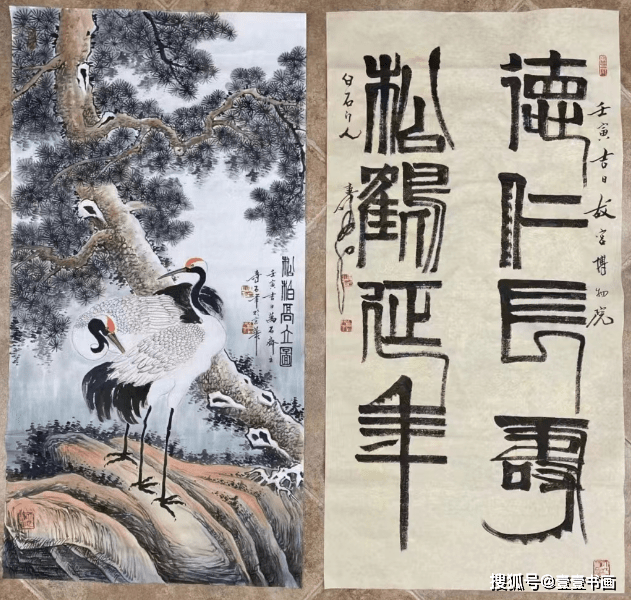 松柏高立圖
壬寅吉日萬石齋主
壬寅吉日故宫博物院
德仁長壽
松鶴延年
白石门人
搜狐号@壹壹书画